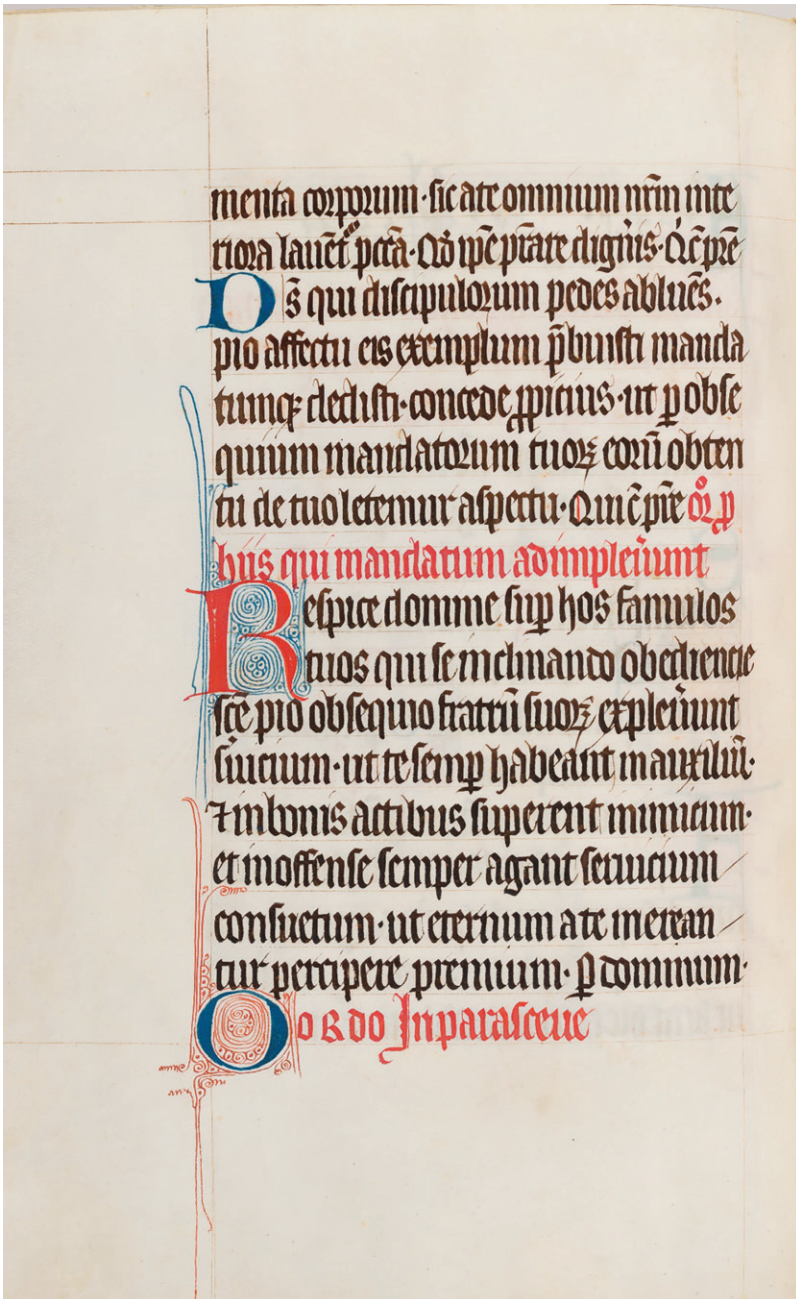 menta corporum·sic a te omnium nr̄m inte
riora lauēt᷑ pctā·Qḋ ip̄e p̄stare digneris·Qi cū pr̄e
Ds̄ qui discipulorum pedes abluēs·
pio affectu eis exemplum p̄buisti manda
tumqꝫ dedisti·concede ꝓpicius·ut ꝑ obse
quium mandatorum tuoꝝ eorū obten
tu de tuo letemur aspectu·Qui cū pr̄e or̄ ꝑ
hiis qui mandatum adimpleu̾unt
Respice domine suꝑ hos famulos
tuos qui se inclinando obediencie
sc̄e pio obsequio fratrū suoꝝ expleu̾unt
su̾icium·ut te semꝑ habeant in auxiliū·
⁊ in bonis actibus superent inimicum·
et inoffense semper agant seruicium
consuetum·ut eternum a te merean
tur percipere premium·ꝑ dominum·
OORDO In parasceue